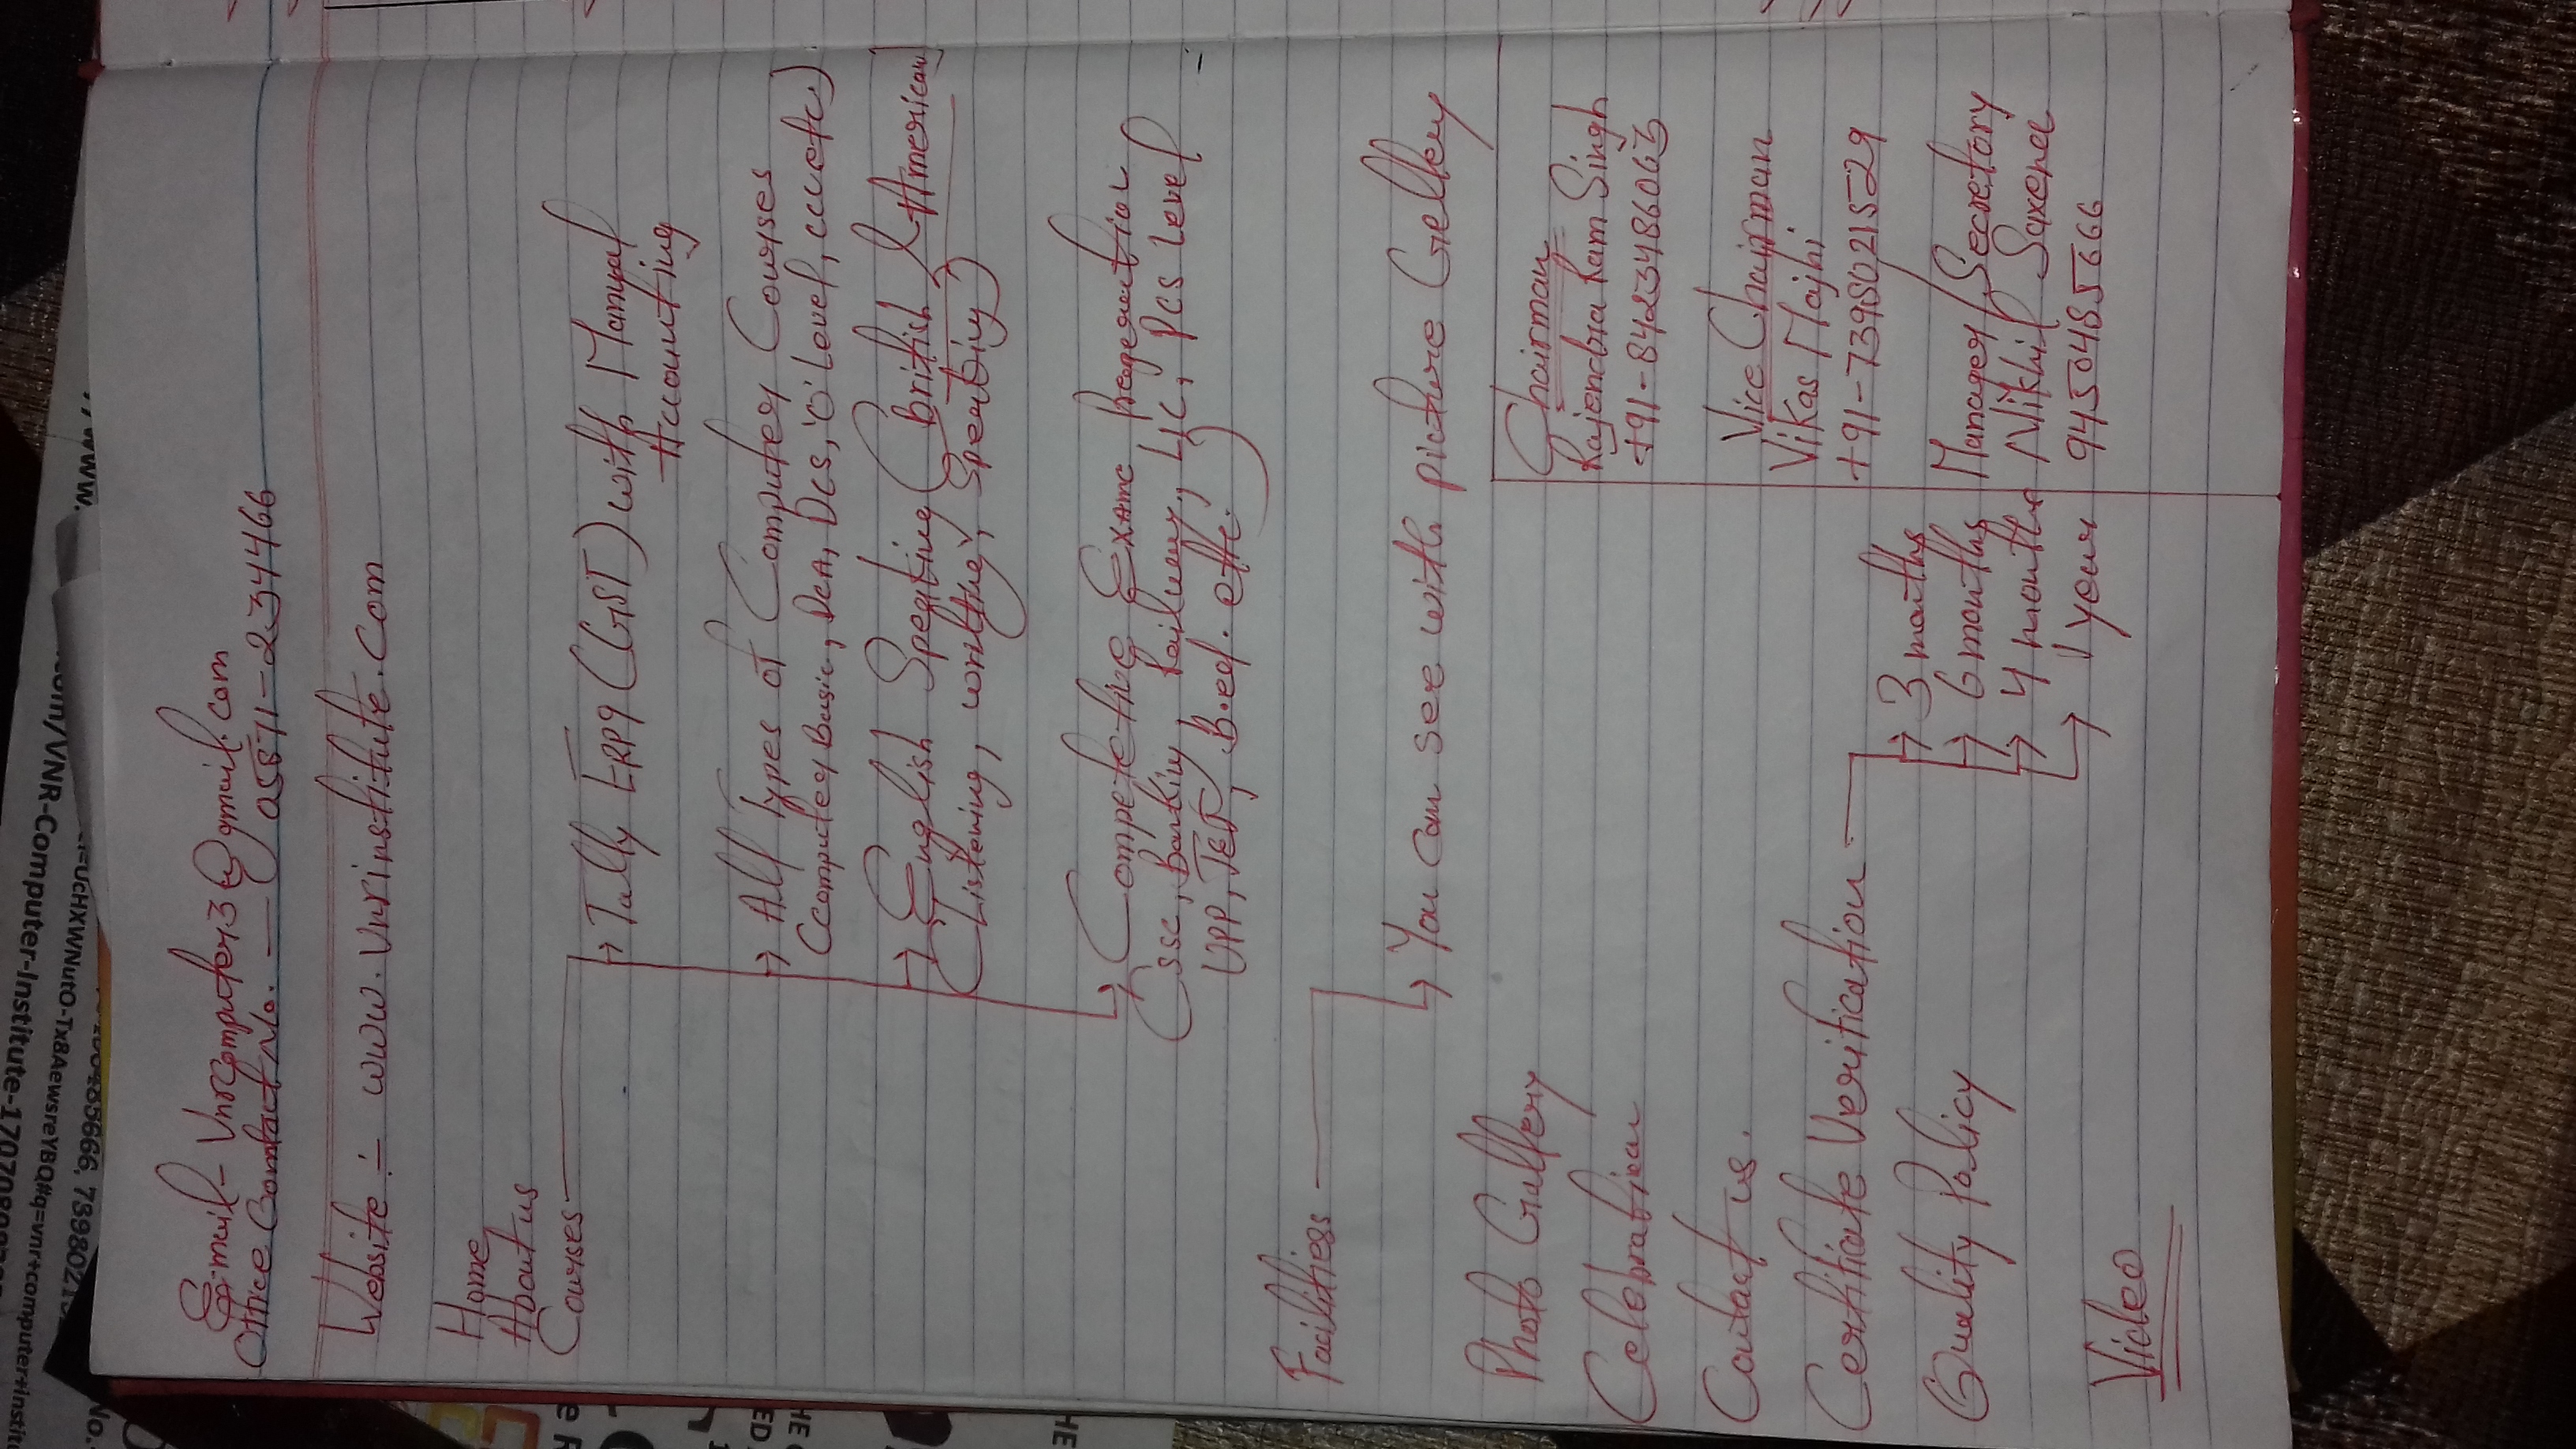 com/VNR-Computer-Institute-170708
E-mail- Vnrcomputer3@gmail.com
Office Contact No. — 05871-234466
Website :- www.vnrinstitute.com
Home
About us
Courses
→ Tally ERP9 (GST) with Manual
Accounting
→ All Types of Computer Courses
(Computer Basic, DCA, DCS, 'O' Level, ccc etc.)
→ English Speaking (British & American)
(Listening, writting, Speaking)
→ Competetive Exame Pregeration
(SSC, Banking, Railway, LIC, PCS Level
UPP, TET, B.ed. etc.)
Facilitiess
→ You can see with picture Gellery
Photo Gallery
Celebration
Contact us.
Certificate Verification
→ 3 months
→ 6 months
→ 4 months
→ 1 year
Quality Policy
Video
Chairman
Rajendra Ram Singh
+91-8423486063
Vice Chairman
Vikas Majhi
+91-7398021529
Manager/Secretory
Nikhil Saxena
9450485666